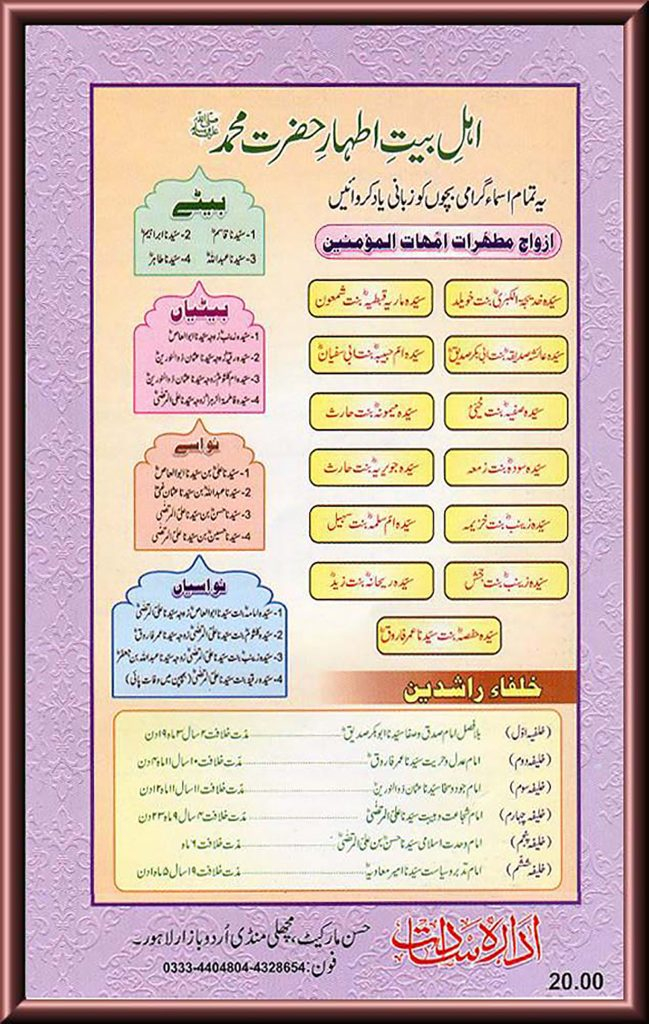 اہلِ بیتِ اطہارِ حضرت محمد ﷺ
یہ تمام اسماء گرامی بچوں کو زبانی یاد کروائیں
ازواج مطہرات امہات المؤمنین
سیّدہ خدیجۃ الکبریٰؓ بنت خویلد
سیّدہ ماریہ قبطیہؓ بنت شمعون
سیّدہ عائشہ صدیقہؓ بنت ابی بکر صدیقؓ
سیّدہ ام حبیبہؓ بنت ابی سفیانؓ
سیّدہ صفیہؓ بنت حُیَیّ
سیّدہ میمونہؓ بنت حارث
سیّدہ سودہؓ بنت زمعہ
سیّدہ جویریہؓ بنت حارث
سیّدہ زینبؓ بنت خزیمہ
سیّدہ ام سلمہؓ بنت سہیل
سیّدہ زینبؓ بنت جحش
سیّدہ ریحانہؓ بنت زید
سیّدہ حفصہؓ بنت سیّدنا عمر فاروقؓ
بیٹے
1- سیّدنا قاسمؓ 2- سیّدنا ابراہیمؓ
3- سیّدنا عبداللہؓ 4- سیّدنا طاہرؓ
بیٹیاں
1- سیّدہ زینبؓ زوجہ سیّدنا ابوالعاصؓ
2- سیّدہ رقیہؓ زوجہ سیّدنا عثمان ذوالنورینؓ
3- سیّدہ ام کلثومؓ زوجہ سیّدنا عثمان ذوالنورینؓ
4- سیّدہ فاطمۃ الزہراؓ زوجہ سیّدنا علی المرتضیٰؓ
نواسے
1- سیّدنا علیؓ بن سیّدنا ابوالعاصؓ
2- سیّدنا عبداللہؓ بن سیّدنا عثمان غنیؓ
3- سیّدنا حسنؓ بن سیّدنا علی المرتضیٰؓ
4- سیّدنا حسینؓ بن سیّدنا علی المرتضیٰؓ
نواسیاں
1- سیّدہ امامہؓ بنت سیّدنا ابوالعاصؓ زوجہ سیّدنا علی المرتضیٰؓ
2- سیّدہ کلثومؓ بنت سیّدنا علی المرتضیٰؓ زوجہ سیّدنا عمر فاروقؓ
3- سیّدہ زینبؓ بنت سیّدنا علی المرتضیٰؓ زوجہ سیّدنا عبداللہ بن جعفرؓ
4- سیّدہ رقیہؓ بنت سیّدنا علی المرتضیٰؓ (بچپن میں وفات پائی)
خلفاء راشدین
(خلیفہ اوّل) بلافصل امام صدق و صفا سیّدنا ابوبکر صدیقؓ مدّت خلافت ۲ سال ۳ ماہ ۱۹ دن
(خلیفہ دوم) امام عدل و حریت سیّدنا عمر فاروقؓ مدّت خلافت ۱۰ سال
(خلیفہ سوم) امام جود و سخا سیّدنا عثمان ذوالنورینؓ مدّت خلافت ۱۱ سال ۱۱ ماہ
(خلیفہ چہارم) امام شجاعت و ہیبت سیّدنا علی المرتضیٰؓ مدّت خلافت ۴ سال ۹ ماہ ۲۳ دن
(خلیفہ پنجم) امام وحدت اسلامی سیّدنا حسنؓ بن علی المرتضیٰؓ مدّت خلافت ۶ ماہ
(خلیفہ ششم) امام تدبر و سیاست سیّدنا امیر معاویہؓ مدّت خلافت ۱۹ سال ۵ ماہ
ادارہ سادات
حسن مارکیٹ، مچھلی منڈی اُردو بازار لاہور۔
فون: 0333-4404804-4328654
20.00